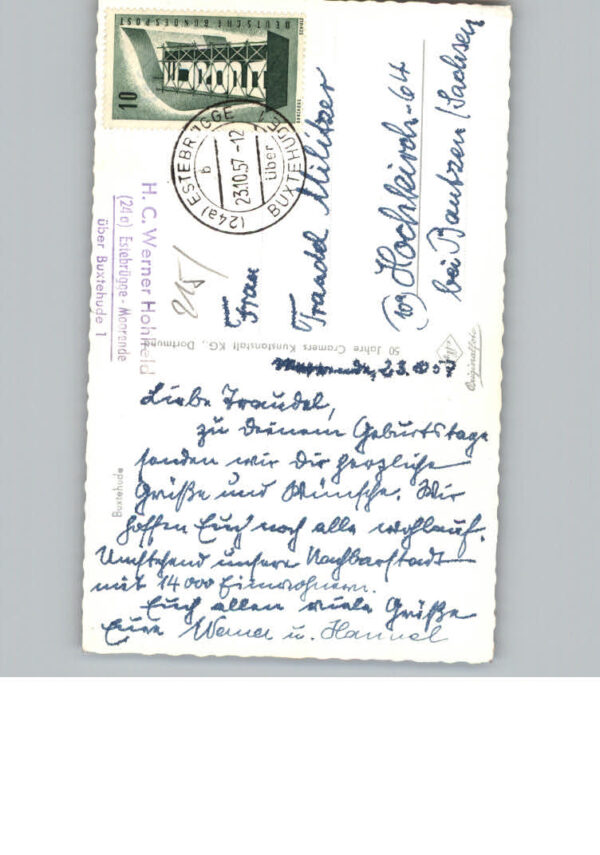 DEUTSCHE BUNDESPOST
10
(24a) ESTEBRÜGGE
über BUXTEHUDE
b
23.10.57.-12
H. C. Werner Hohlfeld
(24a) Estebrügge-Moorende
über Buxtehude 1
215/
Frau
Traudel Militzer
Hochkirch-64
bei Bautzen/Sachsen
50 Jahre Cramers Kunstanstalt KG., Dortmund
Originalfoto
Buxtehude
Moorende, 23.10.57
Liebe Traudel,
zu Deinem Geburtstage
senden wir Dir herzliche
Grüße und Wünsche. Wir
hoffen Euch noch alle wohlauf.
Umstehend unsere Nachbarstadt
mit 14000 Einwohnern.
Euch allen viele Grüße
Eure Werner u. Hannel